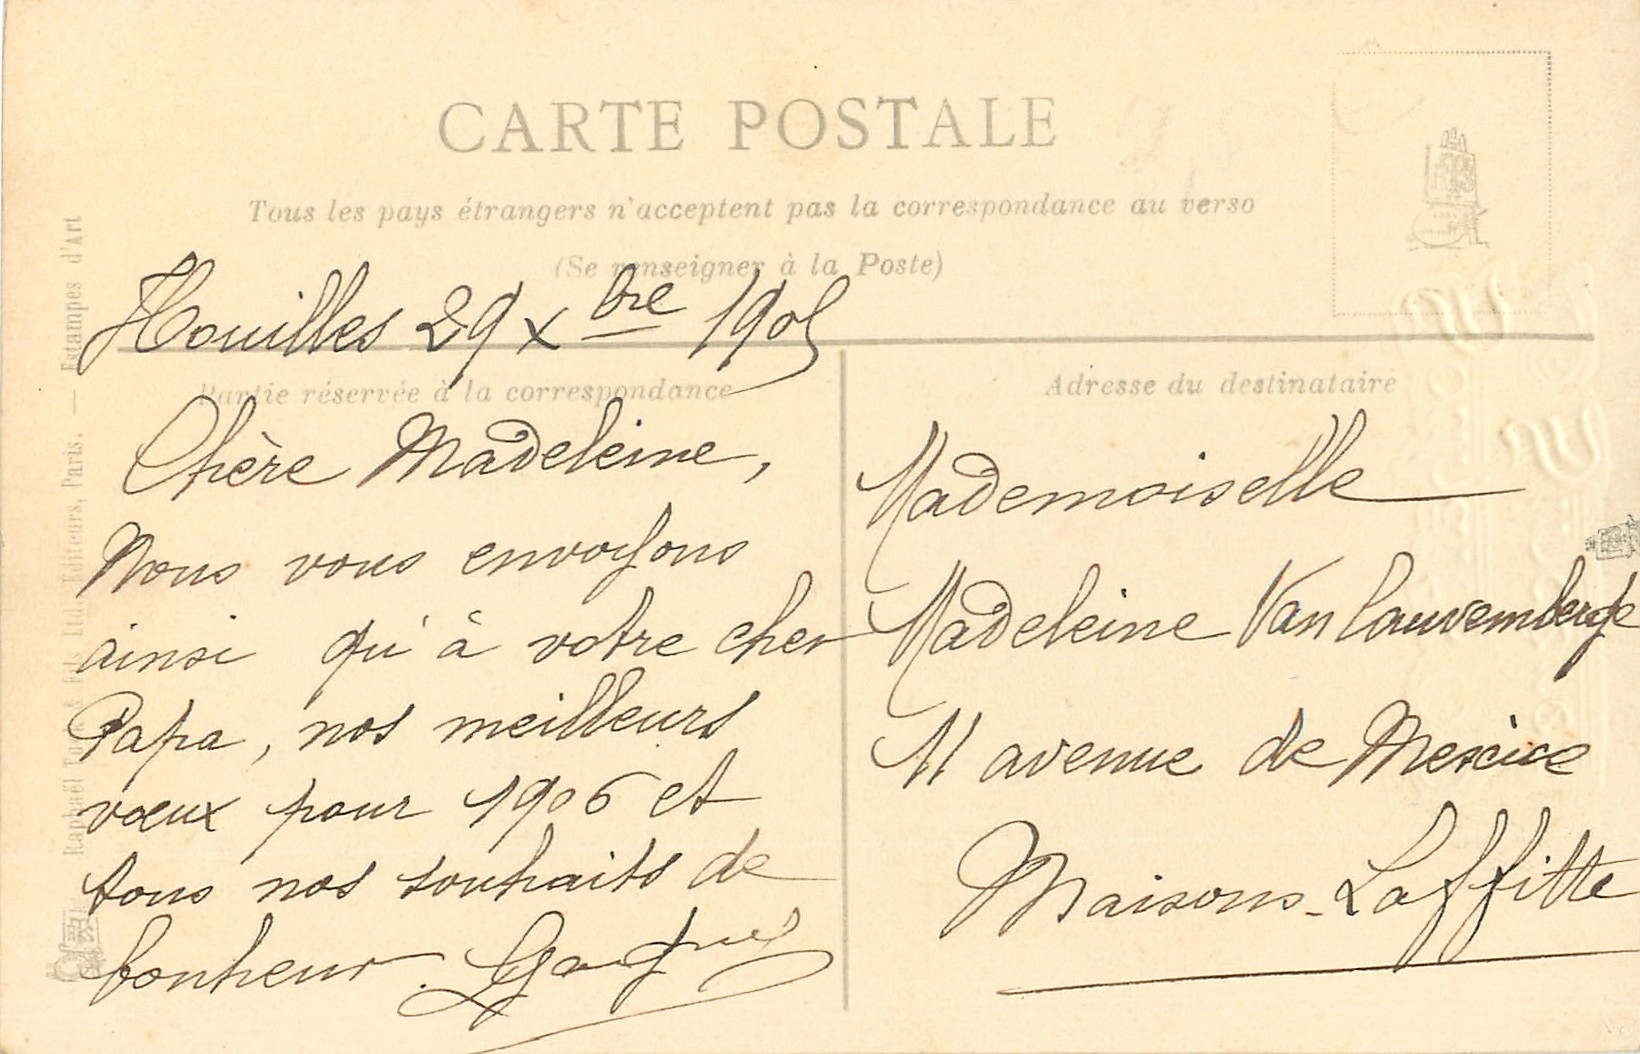 CARTE POSTALE
Tous les pays étrangers n'acceptent pas la correspondance au verso
(Se renseigner à la Poste)
Houilles 29 Xbre 1905
Partie réservée à la correspondance
Chère Madeleine,
Nous vous envoyons
ainsi qu'à votre cher
Papa, nos meilleurs
vœux pour 1906 et
tous nos souhaits de
bonheur.
Adresse du destinataire
Mademoiselle
Madeleine Van Cauwemberge
11 avenue de Mexico
Maisons-Laffitte
Raphaël Tuck & Fils Ltd. Editeurs, Paris. — Estampes d'Art